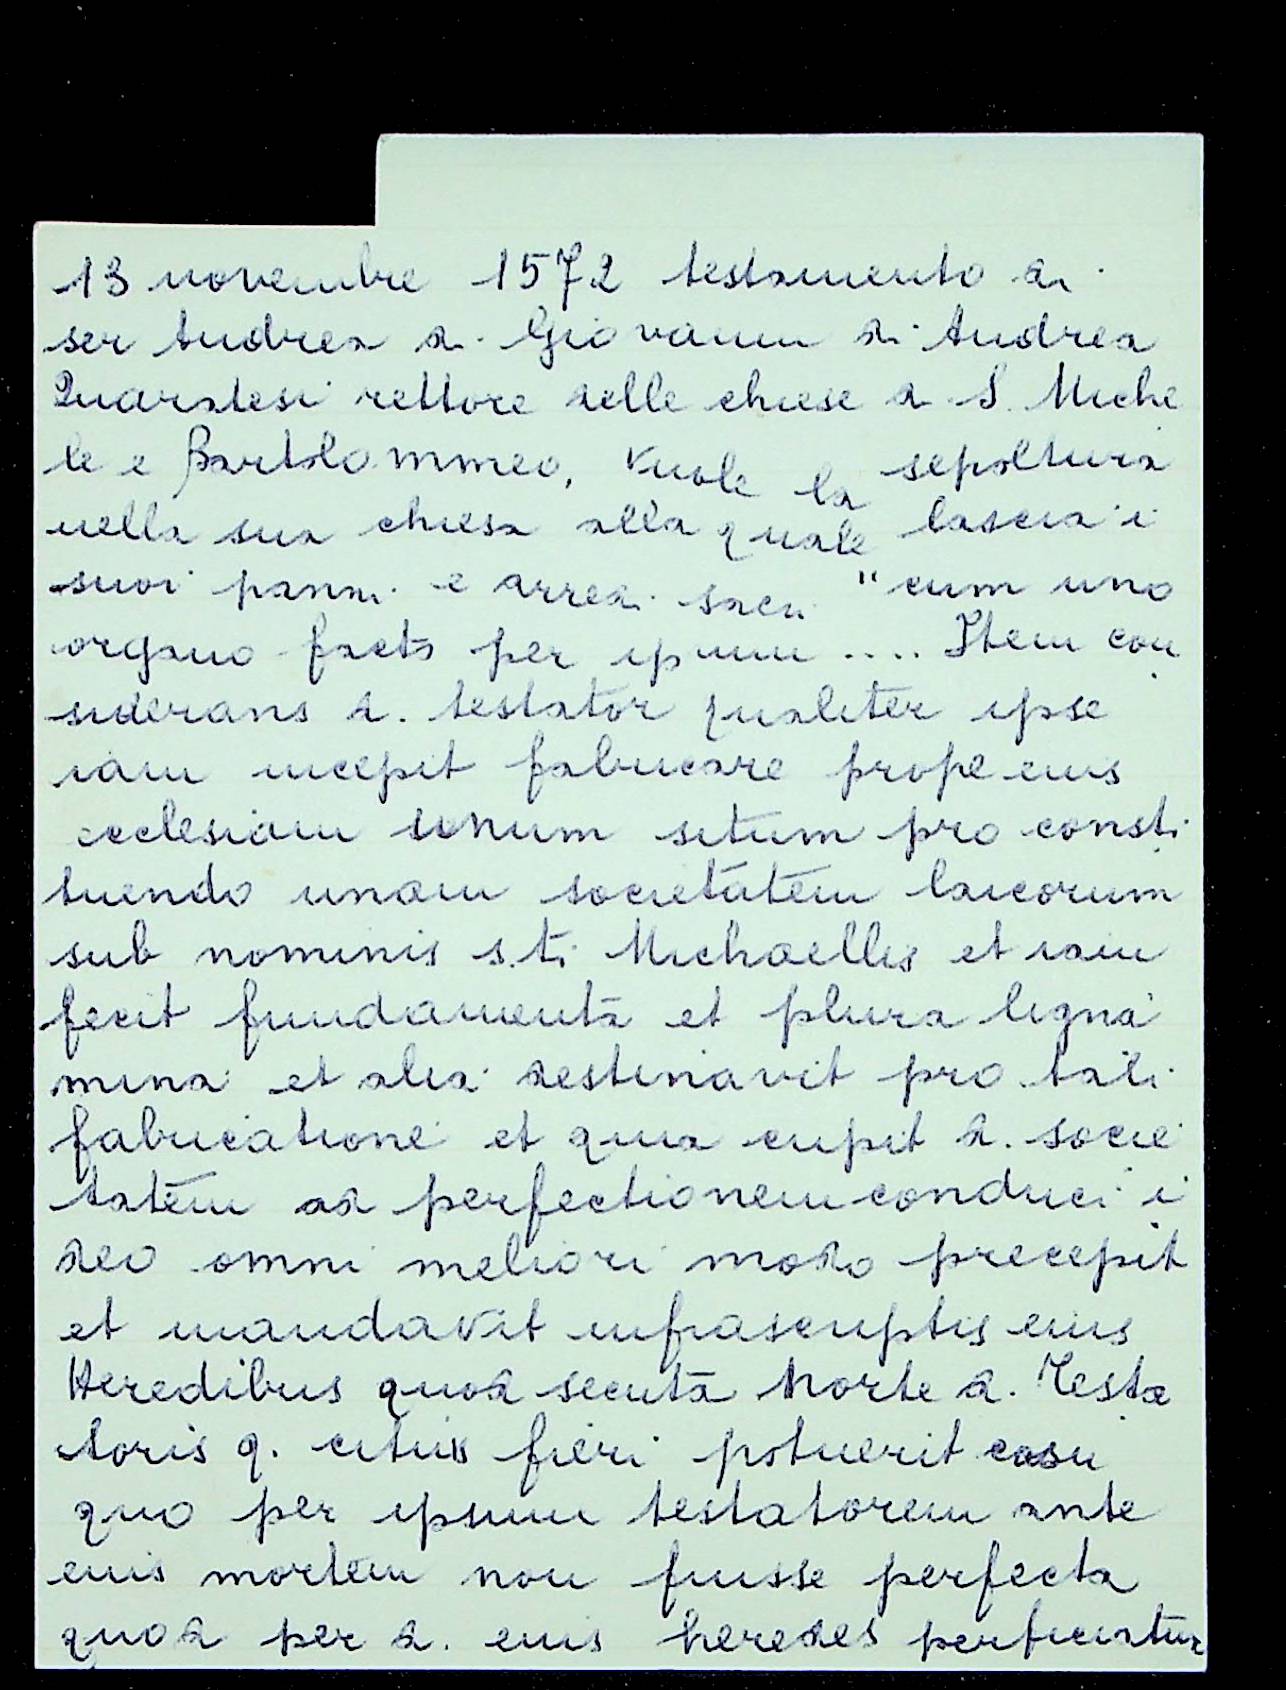 13 novembre 1572 testamento di
ser Andrea di Giovanni di Andrea
Quaratesi rettore delle chiese di S. Miche
le e Bartolommeo, Vuole la sepoltura
nella sua chiesa alla quale lascia i
suoi panni e arredi sacri "cum uno
organo facto per ipsum .... Item con
siderans d. testator qualiter ipse
iam incepit fabricare prope eius
ecclesiam unum situm pro consti
tuendo unam societatem laicorum
sub nominis s.ti Michaellis et iam
fecit fundamenta et plura ligna
mina et alia destinavit pro tali
fabricatione et quia cupit d. socie
tatem ad perfectionem conduci i
deo omni meliori modo precepit
et mandavit infrascriptis eius
Heredibus quod secuta Morte d. Testa
toris q. citius fieri potuerit casu
quo per ipsum testatorem ante
eius mortem non fuisse perfecta
quod per d. eius heredes perficiatur